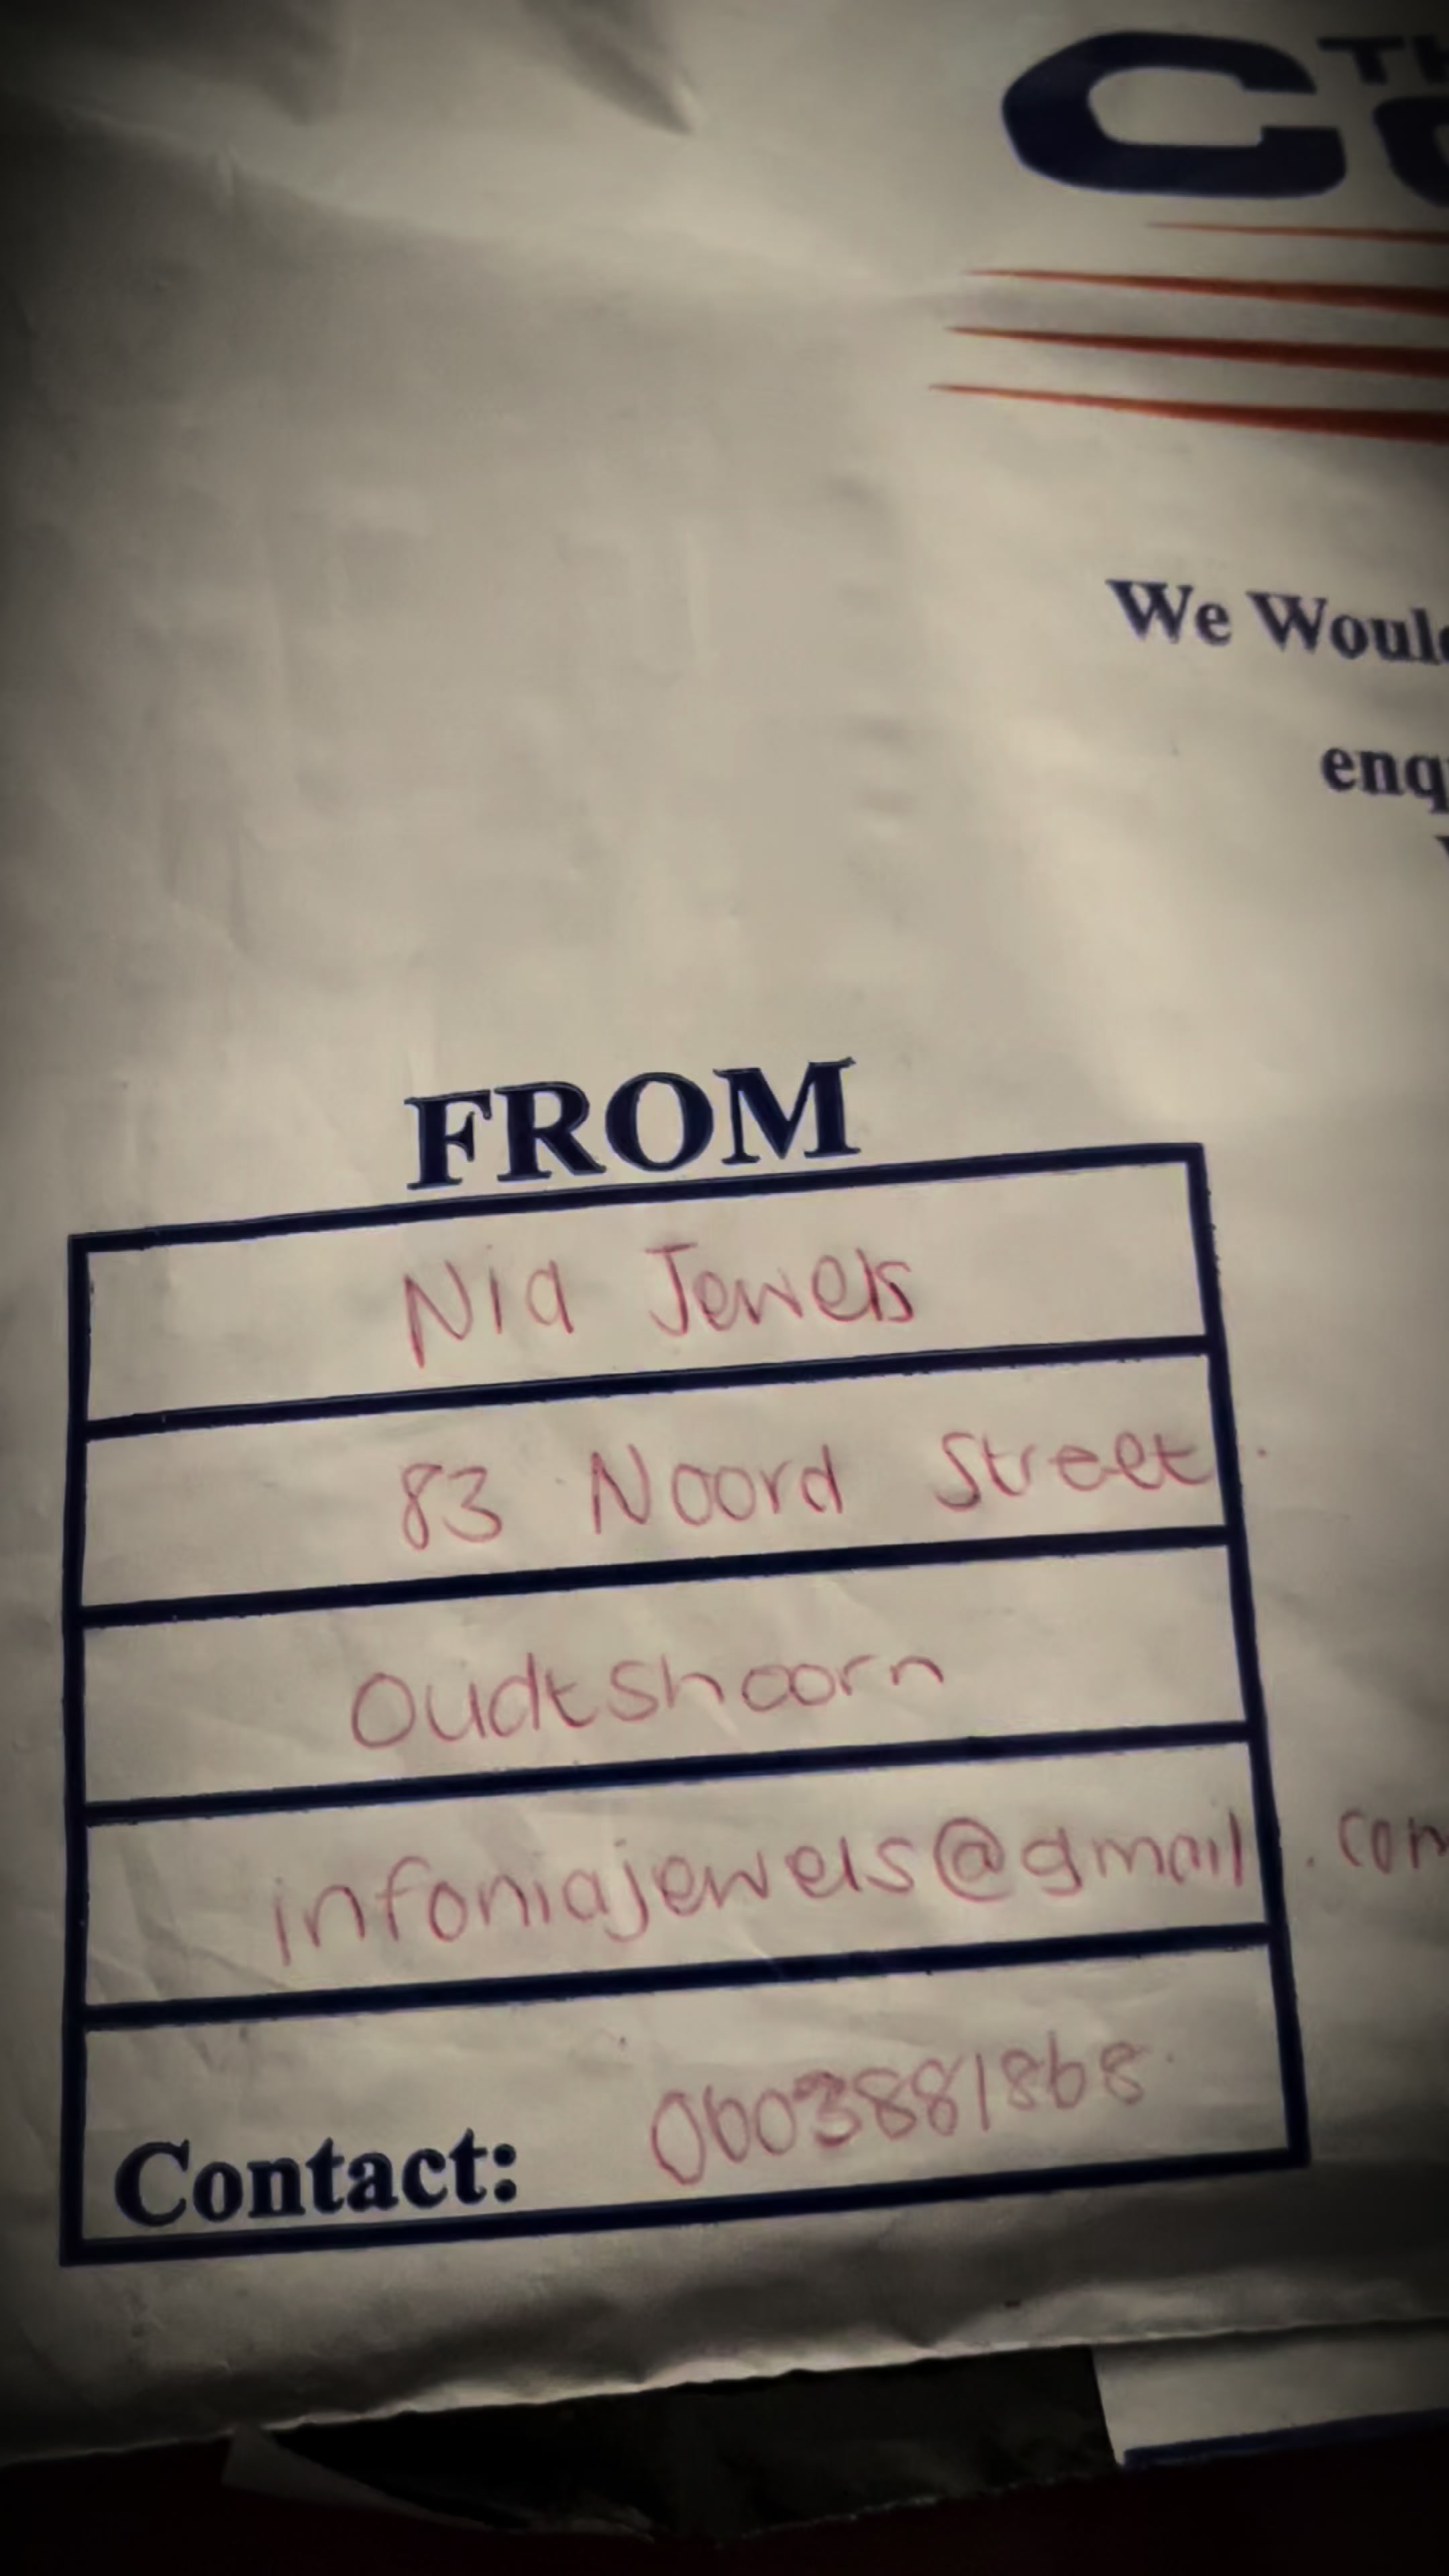 We
FROM
Nia Jewels
83 Noord Street
Oudtshoorn
infoniajewels@gmail.com
Contact: 0603881868